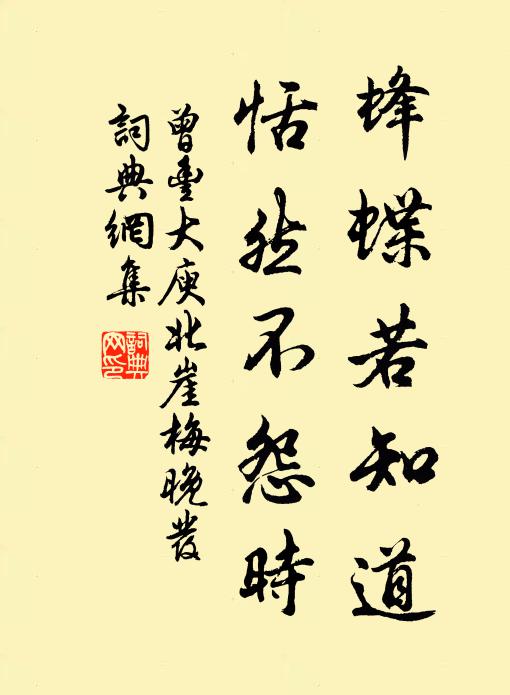 蜂蝶若知道
恬然不怨時
曾豐大庾北崖梅晚發
詞典網集
詞典網印